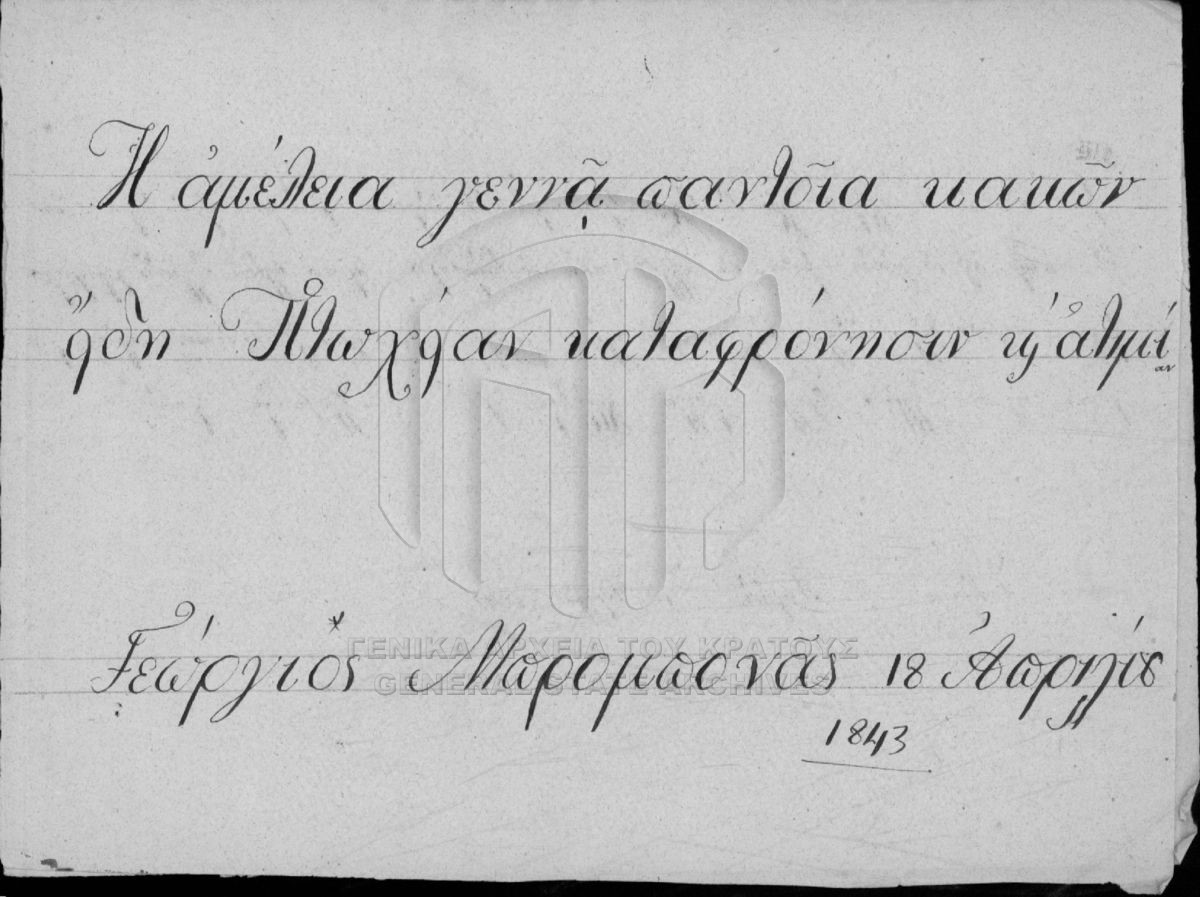 Ἡ ἀμέλεια γεννᾷ παντοῖα κακῶν
ἤδη Πτωχείαν καταφρόνησιν καὶ ἀτιμίαν
ΓΕΝΙΚΑ ΑΡΧΕΙΑ ΤΟΥ ΚΡΑΤΟΥΣ
GENERAL STATE ARCHIVES
Γεώργιος Μπρομπονᾶς 18 Ἀπριλίου
1843